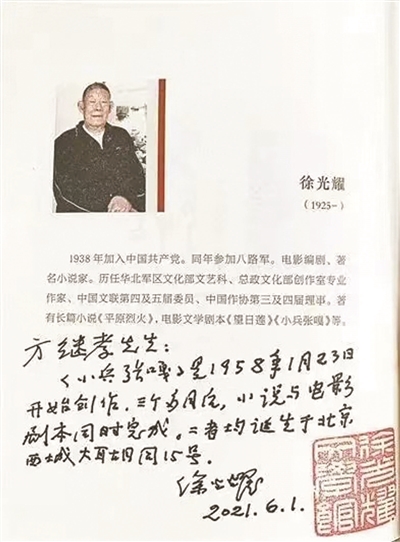 徐光耀
(1925-)
1938年加入中国共产党。同年参加八路军。电影编剧、著
名小说家。历任华北军区文化部文艺科、总政文化部创作室专业
作家、中国文联第四及五届委员、中国作协第三及四届理事。著
有长篇小说《平原烈火》,电影文学剧本《望日莲》《小兵张嘎》等。
方继孝先生:
《小兵张嘎》是1958年1月23日
开始创作。三个多月后,小说与电影
剧本同时完成。二者均诞生于北京
西城大耳胡同15号。
徐光耀
2021.6.1.
徐光耀